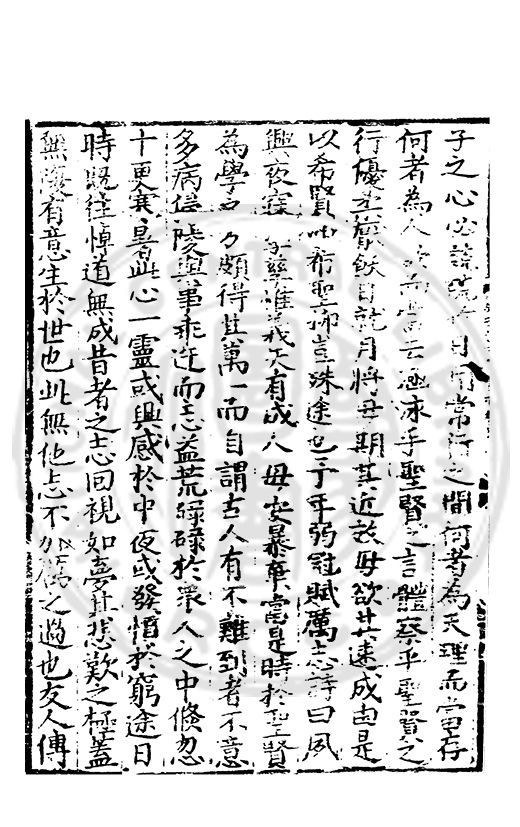 子之心必讀於日用常行之間何者為天理而當存
何者為人欲而當去涵泳乎聖賢之言體察乎聖賢之
行優柔饜飫日就月將毋期其近效毋欲其速成由是
以希賢希聖抑豈殊途也予年弱冠賦厲志詩曰夙
興夜寐孳義天有成人毋安暴棄當是時於聖賢
為學之方頗得其萬一而自謂古人有不難到者不意
多病侵陵與事乖迕而志益荒碌碌於衆人之中倏忽
十更寒暑此心一靈或興感於中夜或發憤於窮途日
時既往悼道無成昔者之志回視如夢其悲歎之極蓋
無復有意生於世也此無他志不加厲之過也友人傅